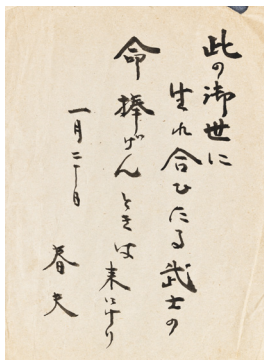 此の御世に
生れ合ひたる武士の
命捧げん ときは来にけり
一月二十日
春夫